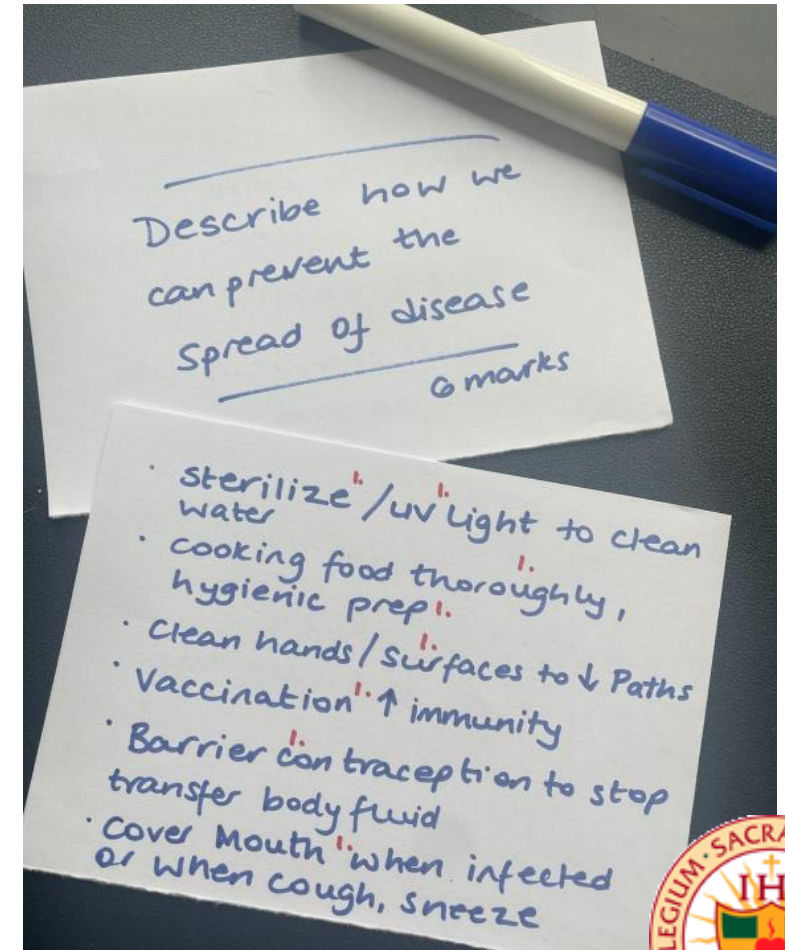 Describe how we
can prevent the
Spread of disease
6 marks
· sterilize 1. /uv 1. light to clean
water
· cooking food thoroughly, 1.
hygienic prep 1.
· Clean hands/surfaces 1. to ↓ Paths
· Vaccination 1. ↑ immunity
· Barrier contraception 1. to stop
transfer body fluid
· Cover Mouth 1. when infected
or when cough, sneeze
LEGIUM · SACRA
IH